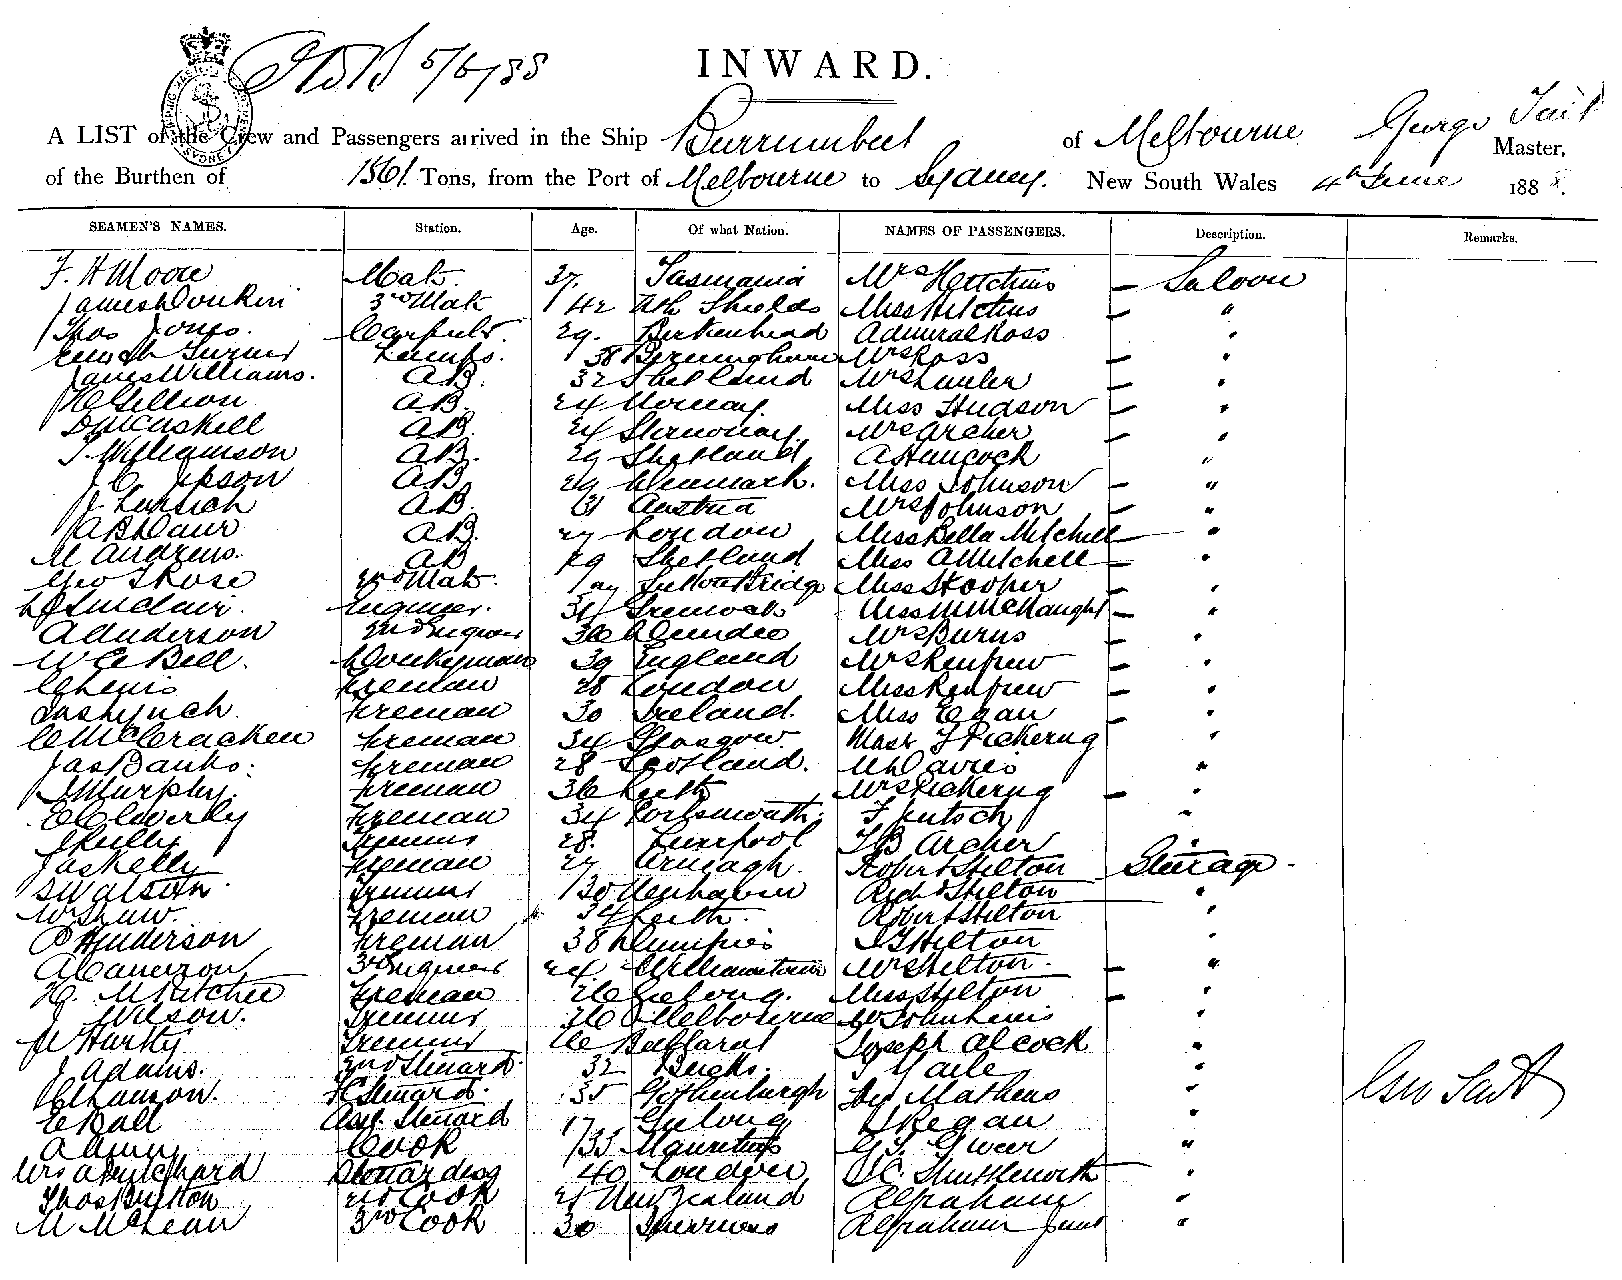 5/6/88
INWARD.
A LIST of the Crew and Passengers arrived in the Ship Burrumbeet of Melbourne George Tait Master,
of the Burthen of Tons, from the Port of Melbourne to Sydney. New South Wales 4th June 1888.
SEAMEN'S NAMES. Station. Age. Of what Nation. NAMES OF PASSENGERS. Description. Remarks.
F. H Moore Mate 37. Tasmania Mrs Hutchins — Saloon
James Donkin 3rd Mate 42 Nth Shields Miss Hutchins — "
Thos Jones. Carpntr 29. Birkenhead Admiral Ross "
Enoch Turner Lamps. 38 Birmingham Mrs Ross — "
James Williams. AB. 32 Shetland Mrs — "
AB. 24 Norway. Miss Hudson — "
D McCaskill AB. 24 Stornoway. Mrs Archer "
T. Williamson AB. 29 Shetland A Hancock "
AB 29 Denmark. Miss Johnson — "
AB. 31 Austria Mrs Johnson — "
AB. 27 London Miss Bella Mitchell — "
M Andrews. AB 29 Shetland Miss A Mitchell — "
Geo T Rose 2nd Mate. Sutton Bridge Miss Hooper — "
Sinclair. Engineer. 34 Greenock Miss M McNaught — "
A Anderson 2nd Engineer 36 Dundee Mrs Burns — "
W C Bell. Donkeyman 39 England Mrs Renfrew — "
C Lewis Fireman 28 London Miss Renfrew — "
Jas Lynch Fireman 30 Ireland. Miss Egan — "
C McCracken Fireman 34 Glasgow. Mast T Pickering "
Jas Banks. Fireman 28 Scotland. Davies "
J Murphy. Fireman 36 Leith Mrs Pickering — "
E Cleverly Fireman 34 Portsmouth. F "
Trimmer 28. Liverpool T B Archer "
Jas Kelly Fireman 27 Armagh. Robert Hilton Steerage -
S Watson. Trimmer 30 Richd Hilton "
W Shaw Fireman 34 Leith. Robert Hilton "
P Henderson Fireman 38 Dumfries J T Hilton "
A Cameron 3rd Engineer 24. Williamstown Mrs Hilton. — "
H. McRitchie Fireman 26 Geelong. Miss Hilton — "
J Wilson. Trimmer 26 Melbourne John Lewis "
Trimmer Ballarat Joseph Alcock "
J Adams. 2nd Steward. 32 Bucks. "
C Hanson. F Steward. 35 Gothenburgh Mathews " Geo Tait
E Ball Asst. Steward 17 Geelong Regan "
Cook 33 Mauritius "
Mrs Stewardess 40 London Shuttleworth "
Thos Button 2nd Cook New Zealand A Graham "
M McLean 3rd Cook 30 A Graham Junr "